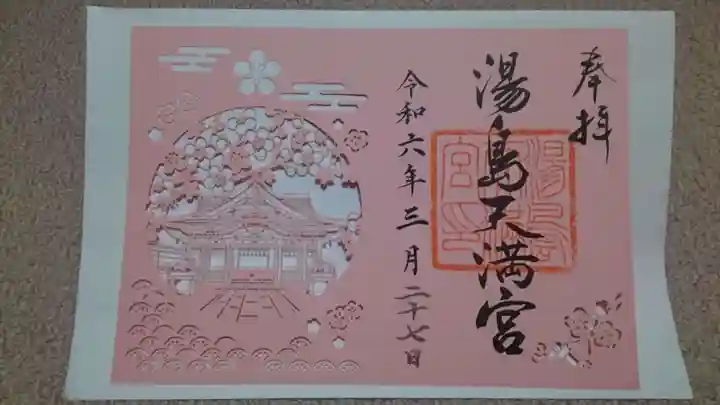 奉拝
湯島天満宮
令和六年三月二十七日